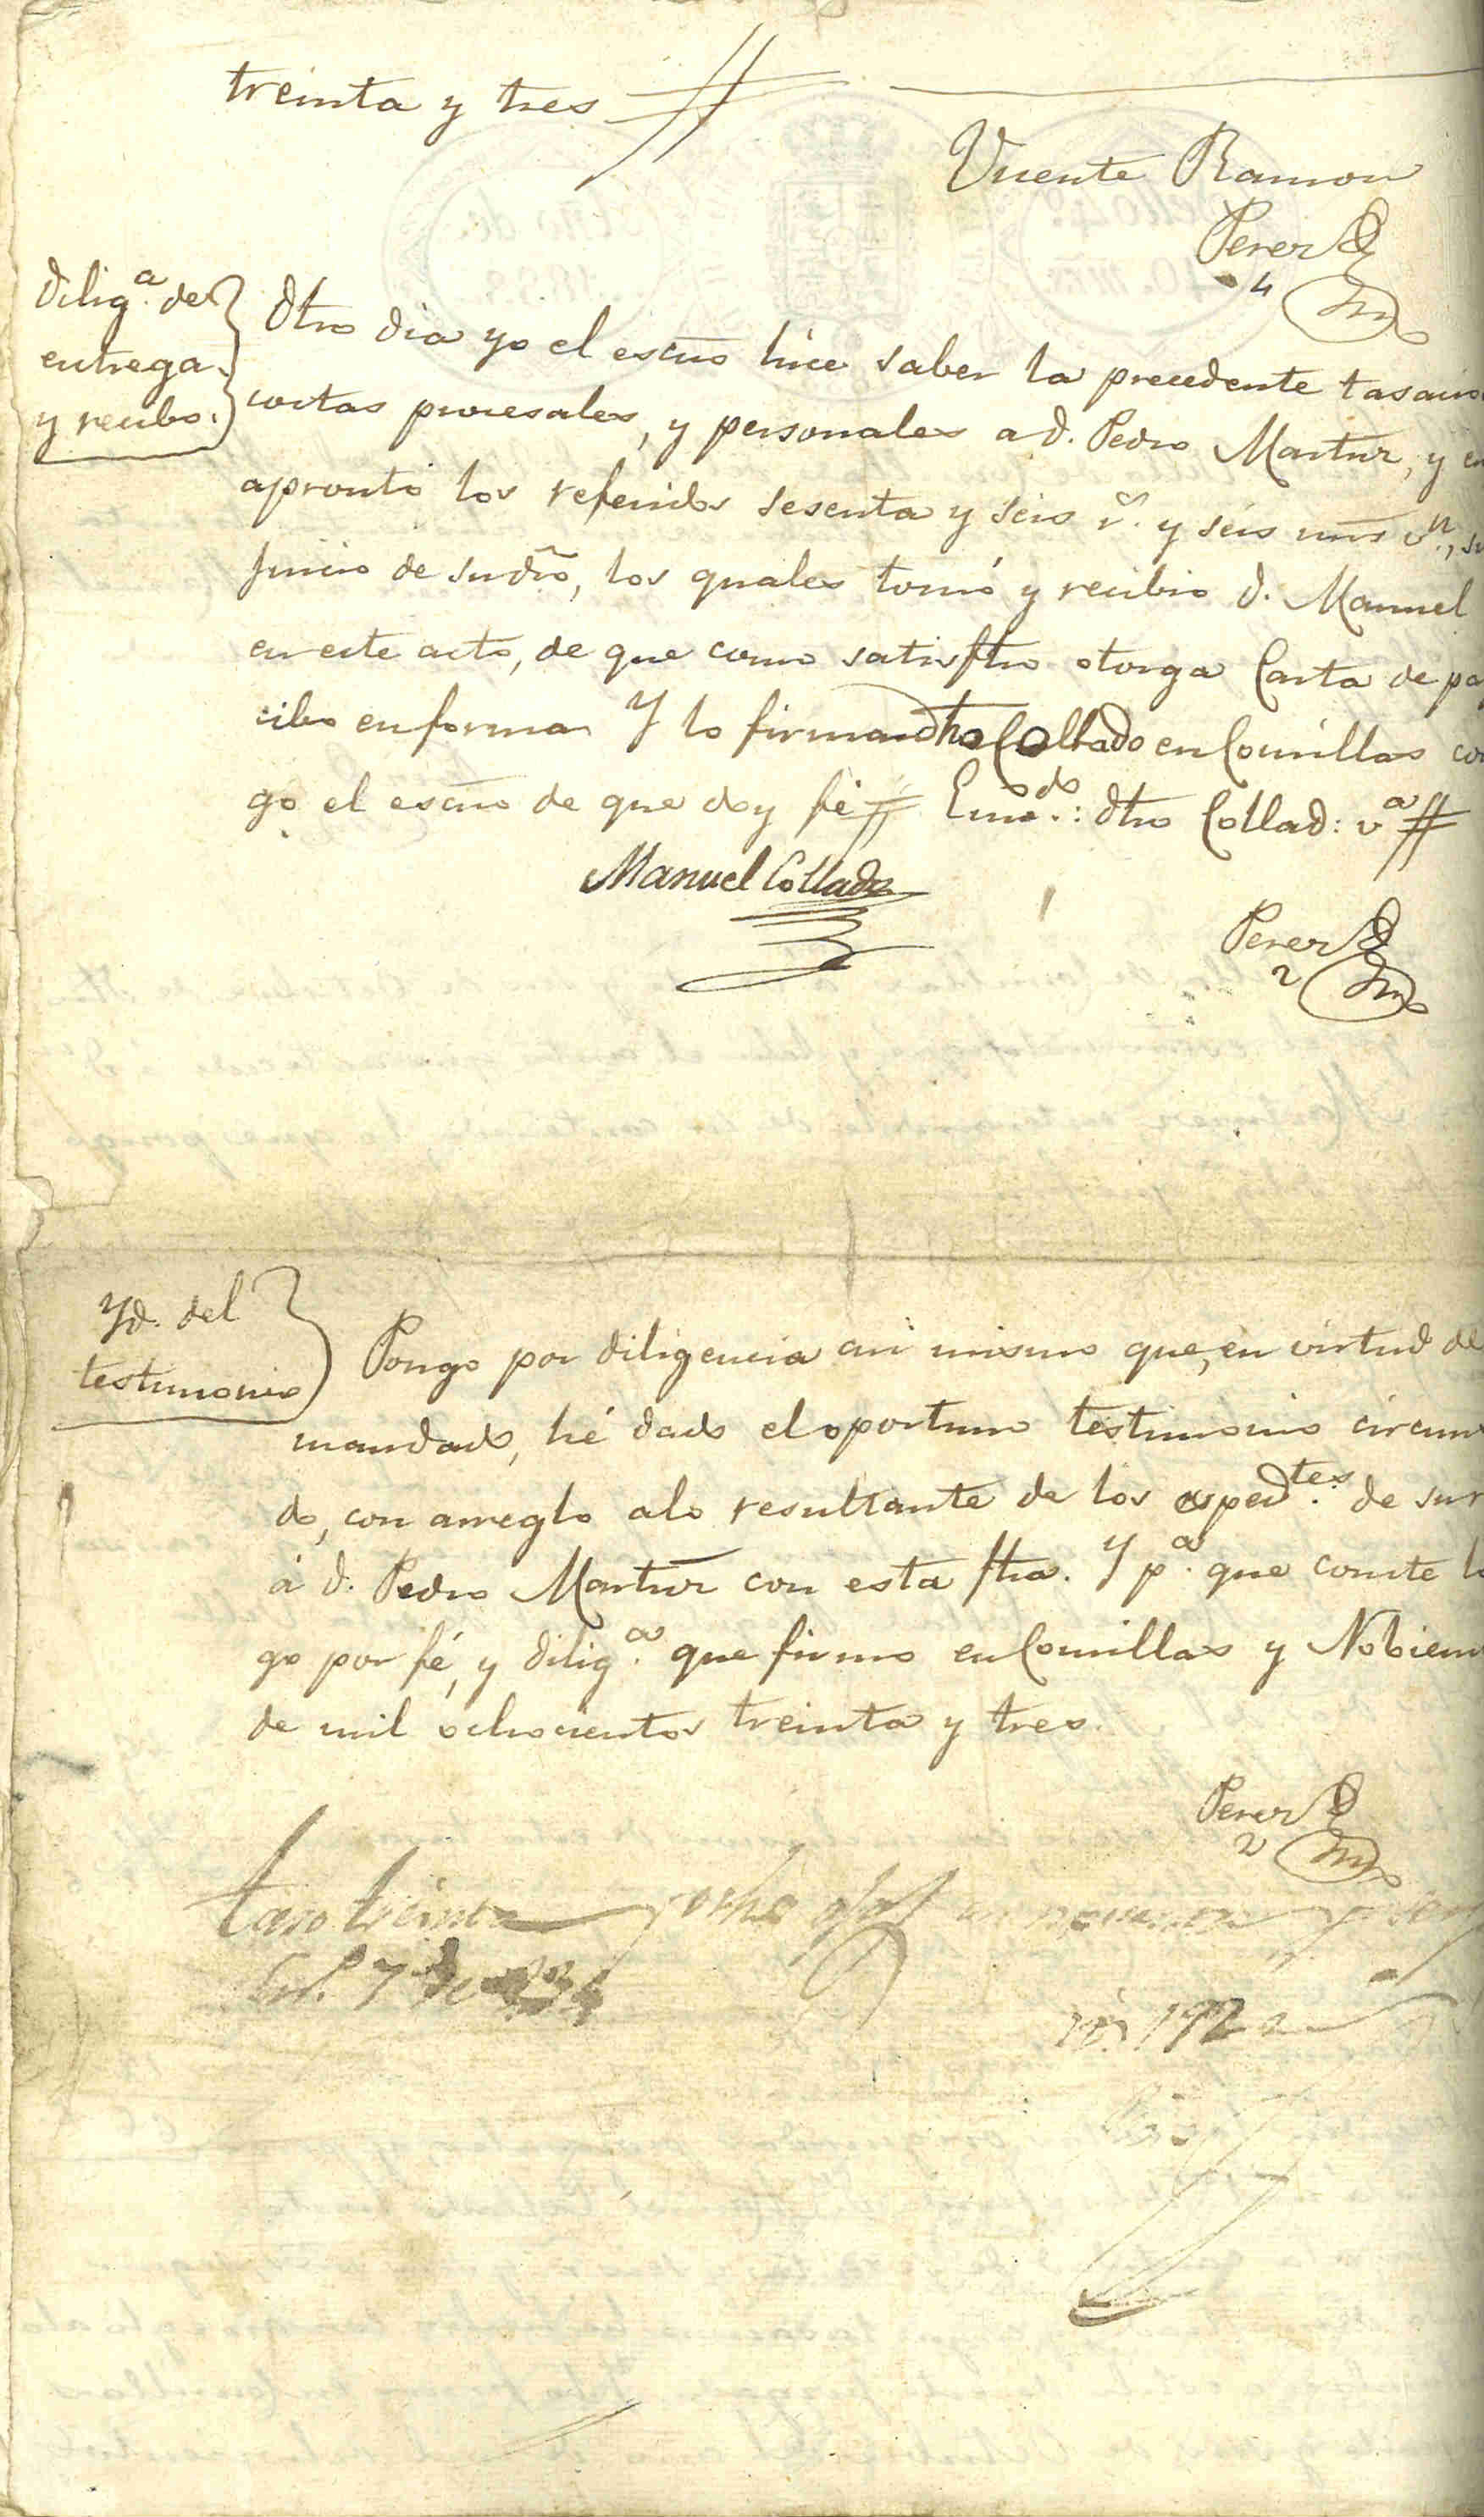 treinta y tres
Vicente Ramon
Perez
4
Dilig.ª de
entrega
y recibo.
Dho dia yo el escño hice saber la precedente tasacio
costas procesales, y personales a d. Pedro Martnz, y en
aprontó los referidos sesenta y seis r.s y seis mrs v.n, su
juicio de su dro, los quales tomó y recibio d. Manuel
en este acto, de que como satisfho otorga Carta de pa
cibo en forma Y lo firma dho Collado en Comillas co
go el escño de que doy fé Enmd.do: dho Collad: v.ª
Manuel Collado
Perez
2
Yd. del
testimonio
Pongo por diligencia asi mismo que, en virtud de
mandado, hé dado el oportuno testimonio circun
do, con arreglo a lo resultante de los exped.tes de su r
á d. Pedro Martnz con esta fha. Y p.ª que conste lo
go por fé, y dilig.ª que firmo en Comillas y Nobiem
de mil ochocientos treinta y tres.
Perez
2
taso treinta y ocho
7 de 834
192